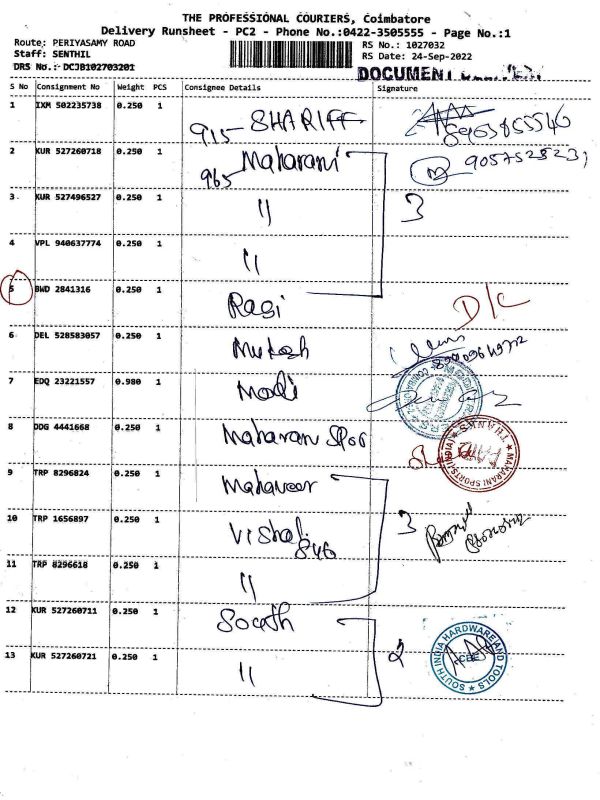 THE PROFESSIONAL COURIERS, Coimbatore
Delivery Runsheet - PC2 - Phone No.:0422-3505555 - Page No.:1
Route: PERIYASAMY ROAD RS No.: 1027032
Staff: SENTHIL RS Date: 24-Sep-2022
DRS No.:- DCJB102703201 DOCUMENT
S No Consignment No Weight PCS Consignee Details Signature
1 IXM 502235738 0.250 1 915 SHARIFF
2 KUR 527260718 0.250 1 965 Maharani
3 KUR 497496527 0.250 1 " 3
4 VPL 940637774 0.250 1 "
5 BWD 2841316 0.250 1 Ragi D/C
6 DEL 528583057 0.250 1 Mukesh
7 EDQ 23221557 0.980 1 Modi
8 DDG 4441668 0.250 1 Maharani Spor
MAHARANI SPORTS (INDIA)
9 TRP 8296824 0.250 1 Mahaveer
10 TRP 1656897 0.250 1 Vishal 846 3
11 TRP 8296618 0.250 1 "
12 KUR 527260711 0.250 1 South
13 KUR 527260721 0.250 1 " 2
SOUTH INDIA HARDWARE AND TOOLS
CBE